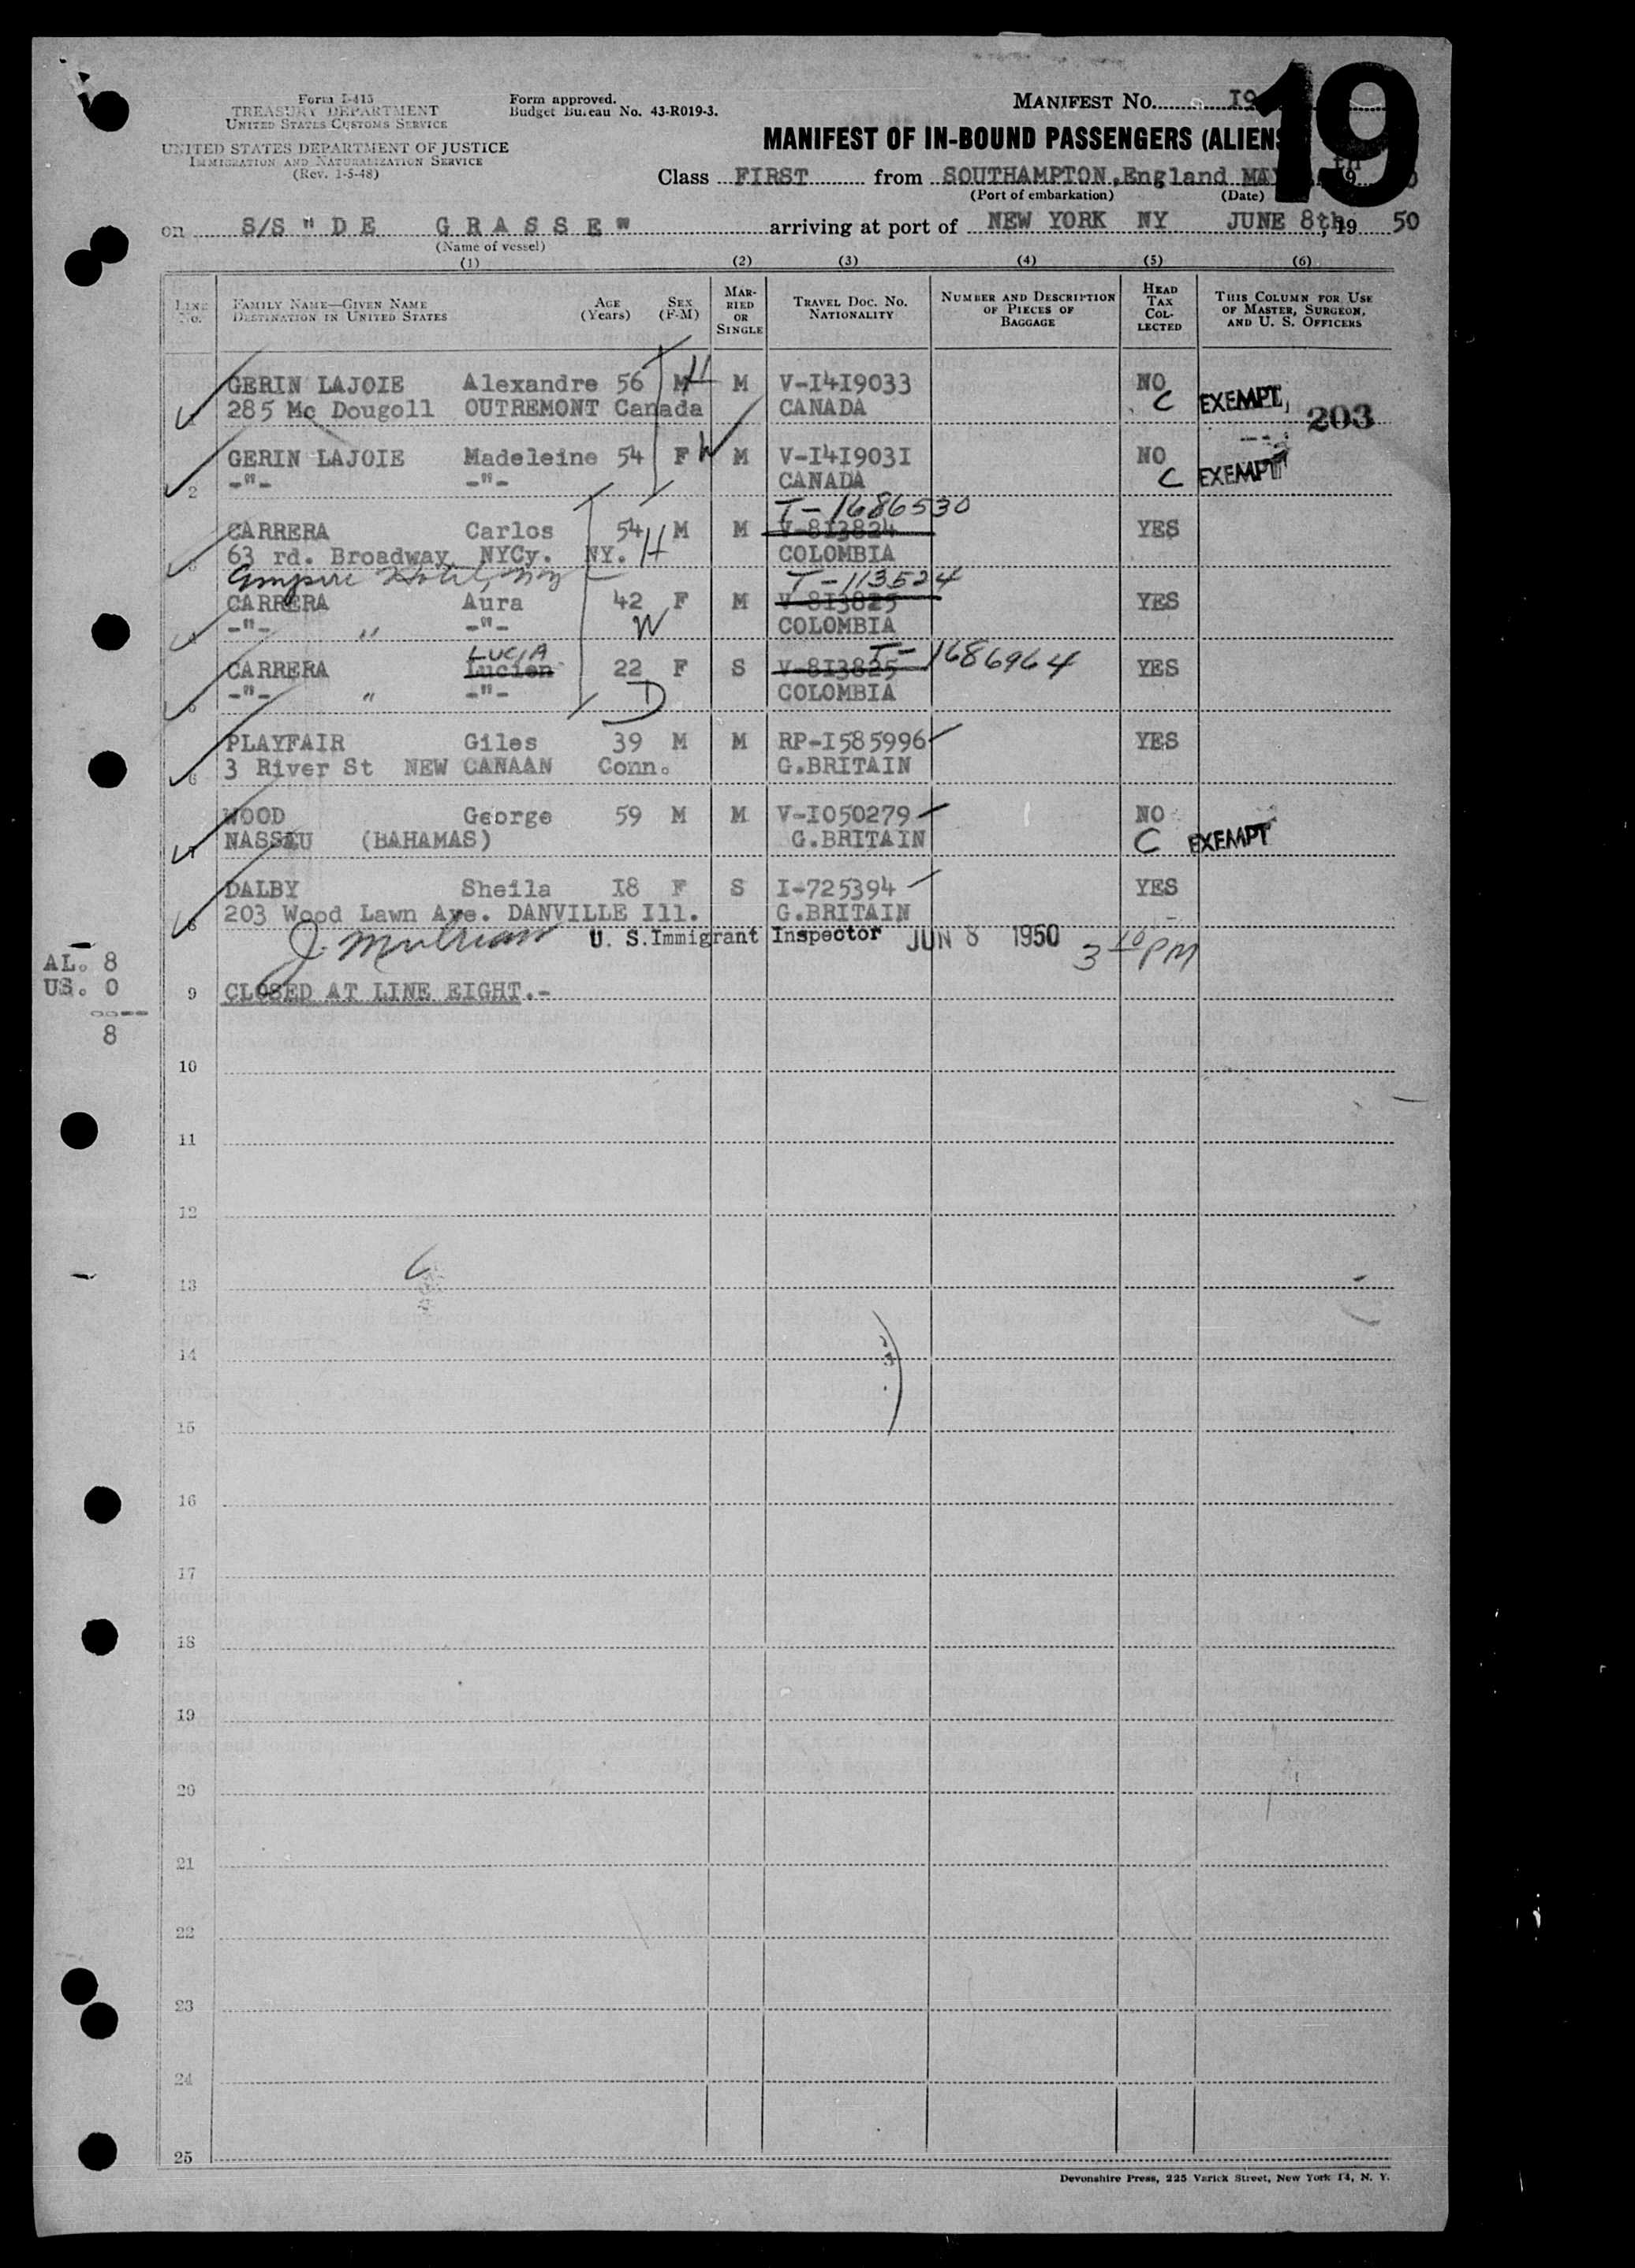 19
Form I-415
TREASURY DEPARTMENT
UNITED STATES CUSTOMS SERVICE
UNITED STATES DEPARTMENT OF JUSTICE
IMMIGRATION AND NATURALIZATION SERVICE
(Rev. 1-5-48)
Form approved.
Budget Bureau No. 43-R019-3.
MANIFEST NO. I9
MANIFEST OF IN-BOUND PASSENGERS (ALIENS
Class FIRST from SOUTHAMPTON, England MAY th
(Port of embarkation) (Date)
on S/S "DE GRASSE" arriving at port of NEW YORK NY JUNE 8th, 19 50
(Name of vessel)
(1) (2) (3) (4) (5) (6)
LINE No. FAMILY NAME—GIVEN NAME DESTINATION IN UNITED STATES AGE (Years) SEX (F-M) MARRIED OR SINGLE TRAVEL DOC. NO. NATIONALITY NUMBER AND DESCRIPTION OF PIECES OF BAGGAGE HEAD TAX COLLECTED THIS COLUMN FOR USE OF MASTER, SURGEON, AND U. S. OFFICERS
GERIN LAJOIE Alexandre 56 M H M V-I4I9033 NO
285 Mc Dougoll OUTREMONT Canada CANADA C EXEMPT 203
GERIN LAJOIE Madeleine 54 F W M V-I4I903I NO
2 -"- -"- CANADA C EXEMPT
T-1686530
CARRERA Carlos 54 M M V-8I3824 YES
63 rd. Broadway NYCy. NY. H COLOMBIA
Empire Hotel, NY T-113524
CARRERA Aura 42 F M V-8I3825 YES
-"- " -"- W COLOMBIA
LUCIA T-1686964
CARRERA Lucien 22 F S V-8I3825 YES
-"- " -"- D COLOMBIA
PLAYFAIR Giles 39 M M RP-I585996 YES
6 3 River St NEW CANAAN Conn. G.BRITAIN
WOOD George 59 M M V-I050279 NO
NASSAU (BAHAMAS) G.BRITAIN C EXEMPT
DALBY Sheila I8 F S I-725394 YES
203 Wood Lawn Ave. DANVILLE Ill. G.BRITAIN
U. S. Immigrant Inspector JUN 8 1950 3 10 PM
AL. 8
US. 0
8
9 CLOSED AT LINE EIGHT.-
10
11
12
13
14
15
16
17
18
19
20
21
22
23
24
25
Devonshire Press, 225 Varick Street, New York 14, N. Y.